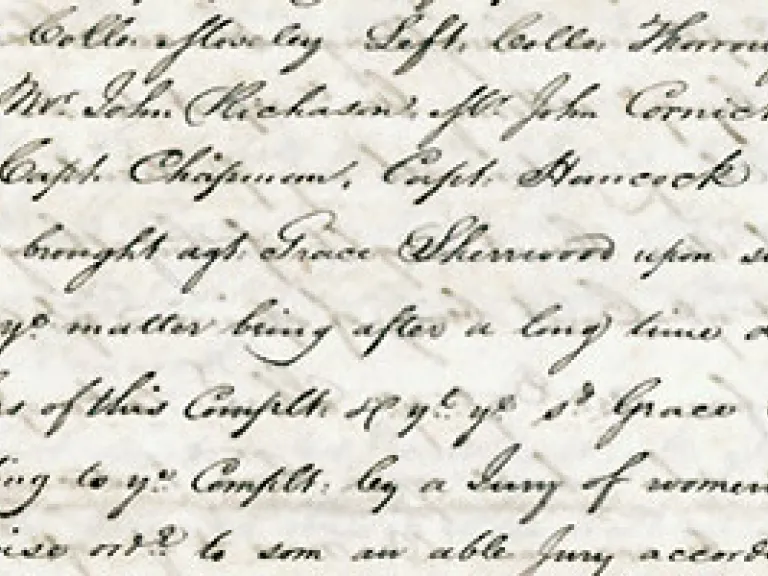 Collo. Moseley Left. Collo. Thorou
Mr. John Richason, Mr. John Cornick
Capt. Chapman, Capt. Hancock
brought agt. Grace Sherwood upon su
ye matter being after a long time d
of this Complt. & yt. ye sd Grace
ing to ye Complt. by a Jury of women
ise ordr. to som an able Jury accord